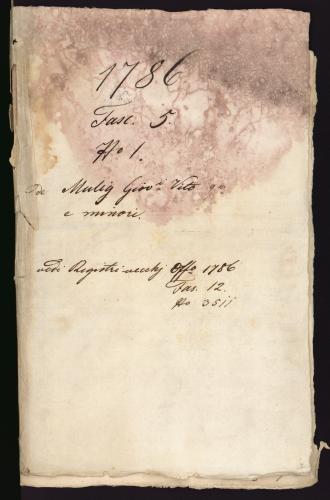 1786
Fasc. 5.
No 1.
De Mulig Giov. Vito
e minori.
vedi Registri vecchj Offo 1786
Fas. 12.
No 3511